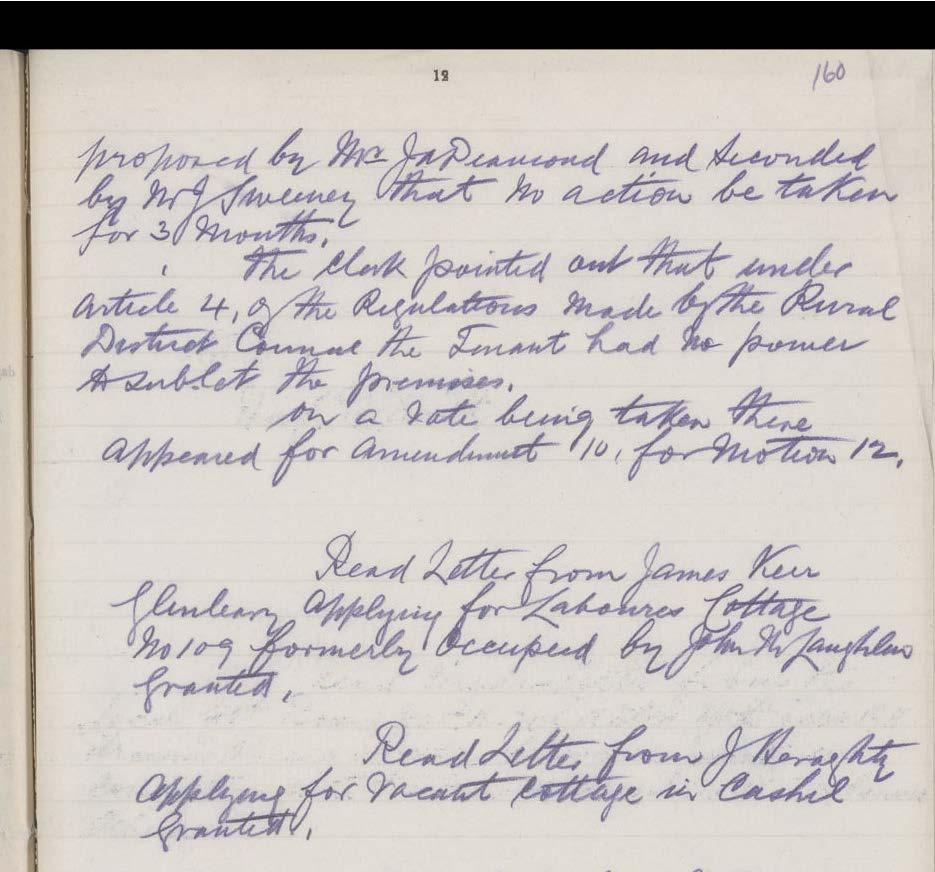 12 160
proposed by Mr Jas Deamond and seconded
by Mr J Sweeney that no action be taken
for 3 Months.
The Clerk pointed out that under
Article 4, of the Regulations made by the Rural
District Council the Tenant had no power
to sublet the premises.
on a vote being taken there
appeared for amendment 10, for Motion 12.
Read Letter from James Kerr
Glenleary applying for Labourers Cottage
No 109 formerly occupied by John McLaughlin
Granted.
Read Letter from J Heraghty
Applying for Vacant Cottage in Cashel
Granted.